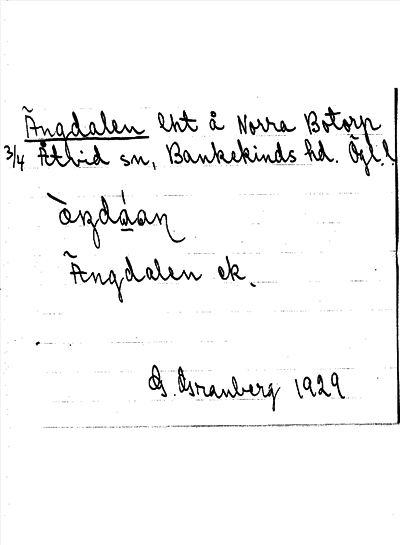 Ängdalen lht å Norra Botorp
3/4 Åtvid sn, Bankekinds hd. Ögl.
Ängdalen ek.
G. Granberg 1929